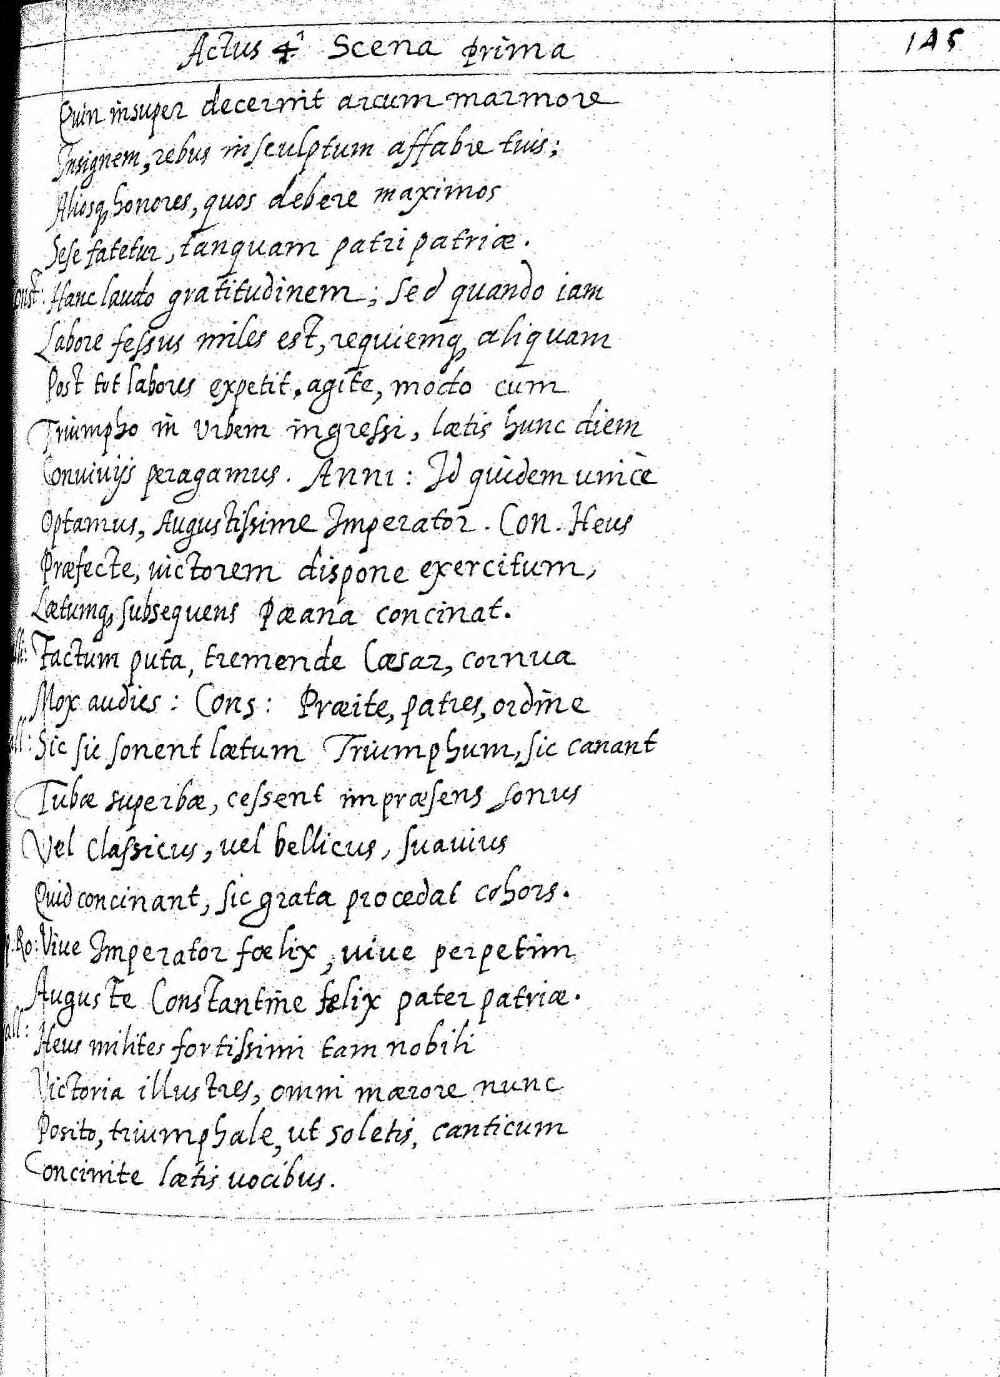 Actus 4.ⁱ Scena prima 145
Quin insuper decernit arcum marmore
Insignem, rebus insculptum affabre tuis;
Aliosq, honores, quos debere maximos
Sese fatetur, tanquam patri patriæ.
onst: Hanc laudo gratitudinem; Sed quando iam
Labore fessus miles est, requiemq, aliquam
Post tot labores expetit, agite, modo cum
Triumpho in Vrbem ingressi, lætis hunc diem
Conuiuijs peragamus. Anni: Id quidem unicè
Optamus, Augustissime Imperator. Con. Heus
Præfecte, uictorem dispone exercitum,
Lætumq, subsequens Pæana concinat.
Factum puta, tremende Cæsar, cornua
Mox audies: Cons: Præite, patres, ordine
all: Sic sic sonent lætum Triumphum, sic canant
Tubæ superbæ, cessent impræsens sonus
Vel classicus, uel bellicus, suauius
Quid concinant, sic grata procedat cohors.
p. Ro: Viue Imperator fœlix, uiue perpetim
Auguste Constantine felix pater patriæ.
all: Heus milites fortissimi tam nobili
Victoria illustres, omni mærore nunc
Posito, triumphale, ut soletis, canticum
Concinite lætis uocibus.